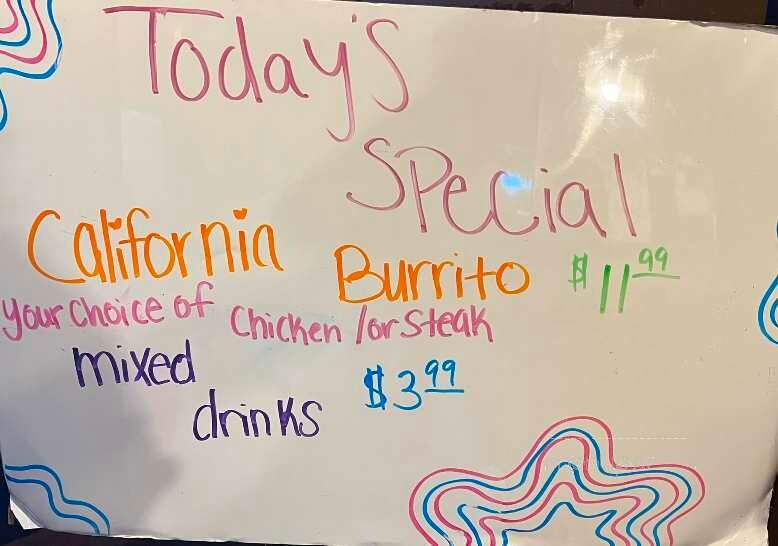 Today's
Special
California Burrito $11.99
your choice of chicken /or steak
mixed
drinks $3.99